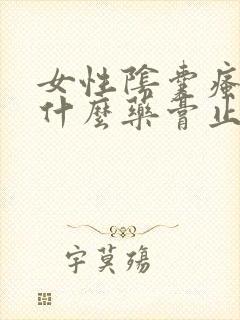 女性陰囊瘙
什麼藥膏止
字莫殤